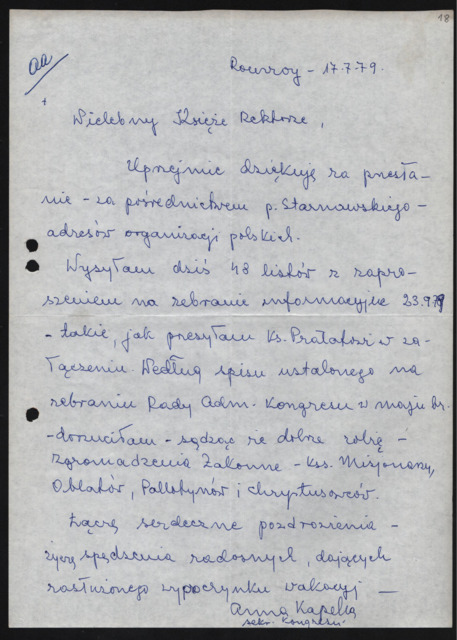 18
aa
Rouvroy - 17.7.79.
+
Wielebny Księże Rektorze,
Uprzejmie dziękuję za przesła-
nie - za pośrednictwem p. Starnowskiego -
adresów organizacji polskich.
Wysyłam dziś 48 listów z zapro-
szeniem na zebranie informacyjne 23.9.79
- takie, jak przesyłam Ks. Prałatowi w za-
łączeniu. Według spisu ustalonego na
zebraniu Rady Adm. Kongresu w maju br.
- dorzuciłam - sądząc że dobrze robię -
zgromadzenia Zakonne - Kss. Misjonarzy,
Oblatów, Pallotynów i Chrystusowców.
Łączę serdeczne pozdrowienia -
życzę spędzenia radosnych, dających
zasłużonego wypoczynku wakacyj -
Anna Kapella
sekr. Kongresu